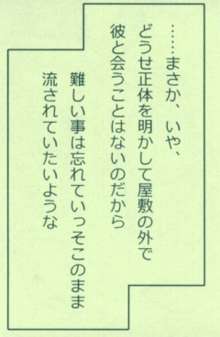 ……まさか、いや、
どうせ正体を明かして屋敷の外で
彼と会うことはないのだから
難しい事は忘れていっそこのまま
流されていたいような